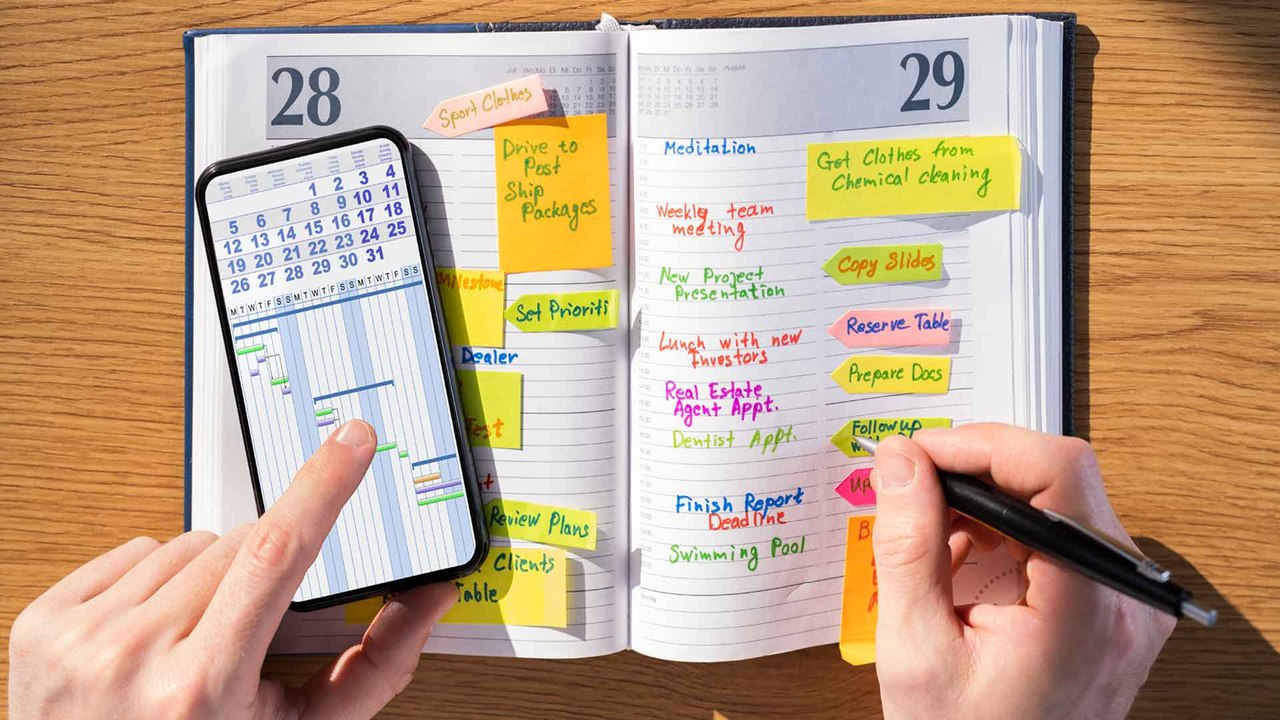 28
Sport Clothes
Drive to
Post
Ship
Packages
Milestone
Set Prioriti
Dealer
Test
Review Plans
Clients
Table
1 2 3 4
5 6 7 8 9 10 11
12 13 14 15 16 17 18
19 20 21 22 23 24 25
26 27 28 29 30 31
M T W T F S S M T W T F S S
29
August
Meditation
Weekly team
meeting
New Project
Presentation
Lunch with new
Investors
Real Estate
Agent Appt.
Dentist Appt.
Finish Report
Deadline
Swimming Pool
Get Clothes from
Chemical cleaning
Copy Slides
Reserve Table
Prepare Docs
Follow up
Up